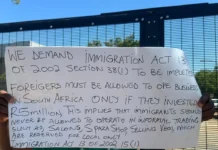 WE DEMAND IMMIGRATION ACT 13
OF 2002 SECTION 38(1) TO BE IMPLE
FOREIGERS MUST BE ALLOWED TO OPE BUSINES
SOUTH AFRICA ONLY IF THEY INVESTED
R5 MILLION. THIS IMPLIES THAT IMMIGRANTS SHOULD
NEVER BE ALLOWED TO OPERATE IN INFORMAL TRADING
SUCH AS SALONS, SPAZA SHOP, SELLING
ARE RESERVED FOR LOCAL ONLY
IMMIGRATION ACT 13 OF 2002 15(1)